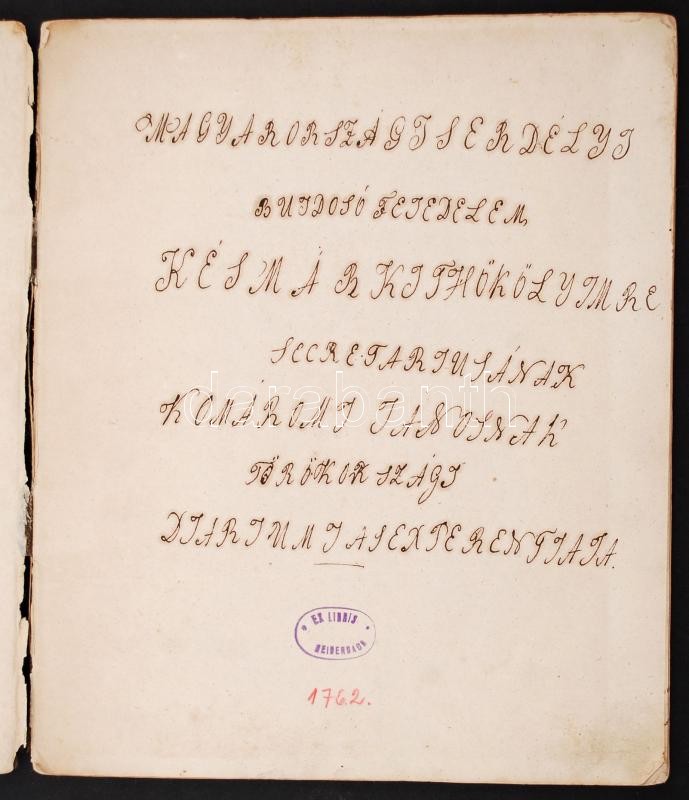 MAGYARORSZÁGI S ERDÉLYI
BUJDOSÓ FEJEDELEM,
KÉSMÁRKI THÖKÖLY IMRE
SECRETARIUSÁNAK
KOMÁROMI JÁNOSNAK
TÖRÖKORSZÁGI
DIARIUMJA S EXPERENTIAJA.
darabanth
EX LIBRIS
HEIDERBACH
1762.